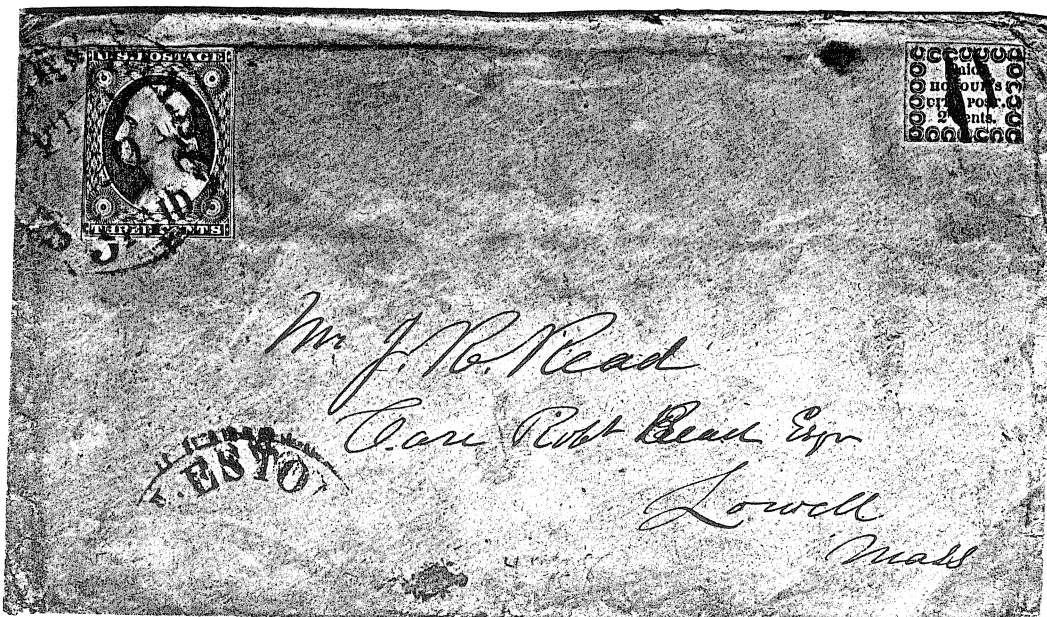 U.S. POSTAGE
THREE CENTS
Paid
HONOUR'S
CITY POST.
2 Cents.
Mr J. R. Read
Care Robt Beall Esqr
Lowell
Mass